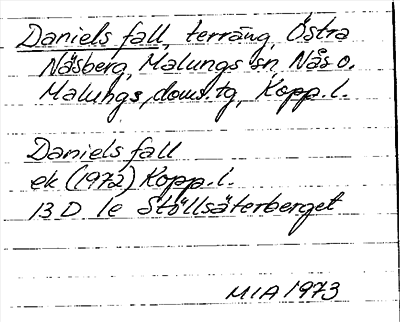 Daniels fall, terräng, Östra
Näsberg, Malungs sn, Nås o.
Malungs doms.tg, Kopp.l.
Daniels fall
ek (1972) Kopp.l.
13 D 1e Stöllsäterberget
MIA 1973